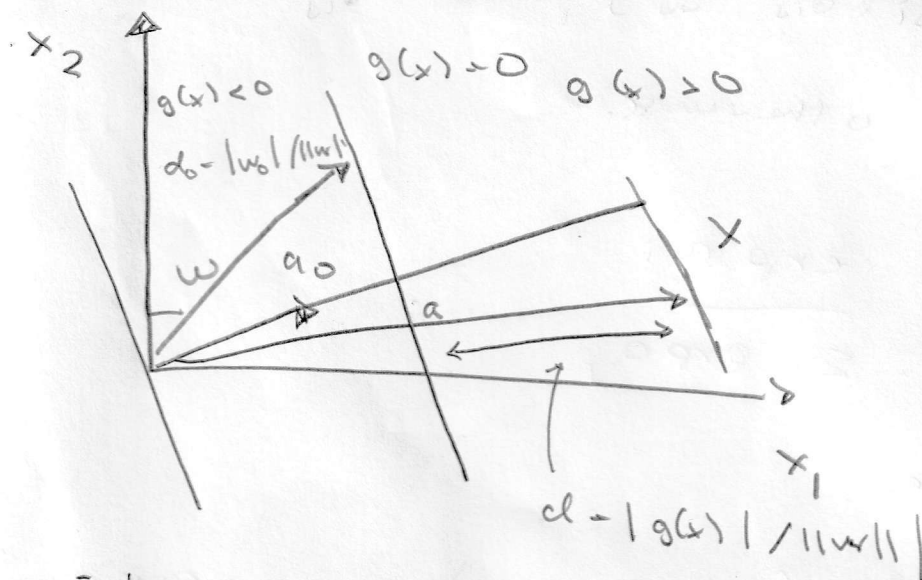 x2
g(x) < 0
g(x) = 0
g(x) > 0
d0 = |w0| / ||w||
w
a0
a
X
x1
d = |g(x)| / ||w||